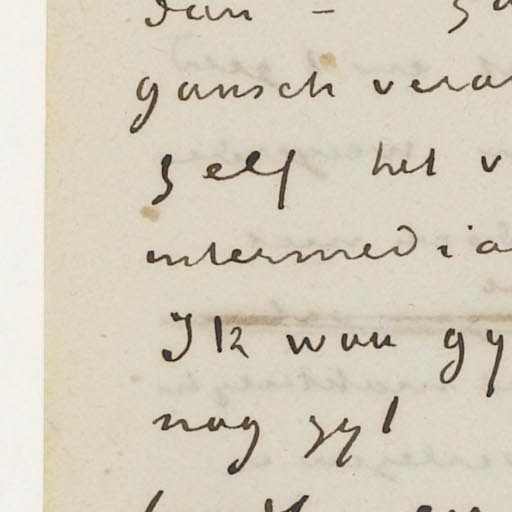 dan –
gansch vera
zelf het v
intermedia
Ik wou gy
nog zyt